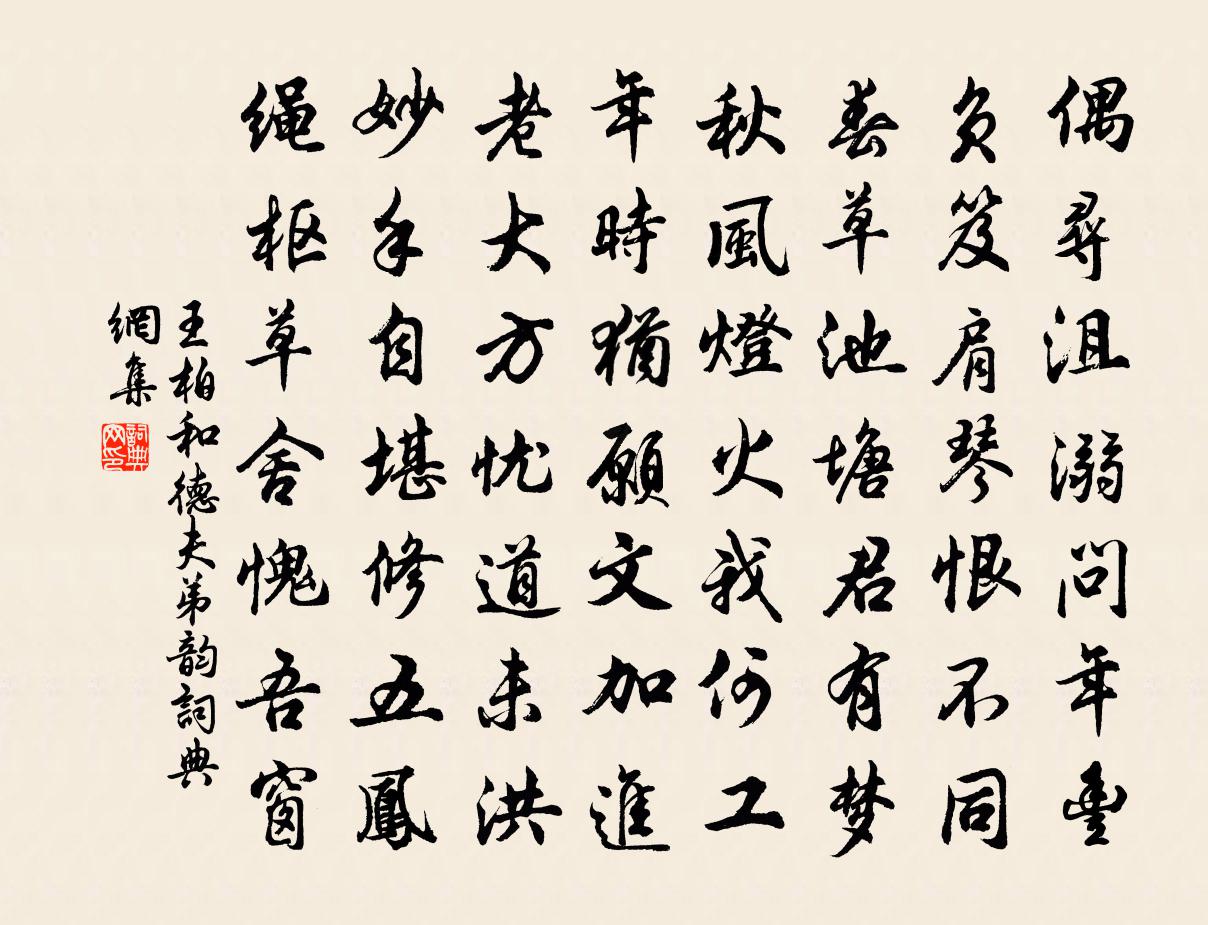 偶尋沮溺問年豊
負笈肩琴恨不同
春草池塘君有梦
秋風燈火我何工
年時猶願文加進
老大方忧道未洪
妙手自堪修五鳳
绳枢草舍愧吾窗
王柏和德夫弟韵詞典
網集
詞典
网印